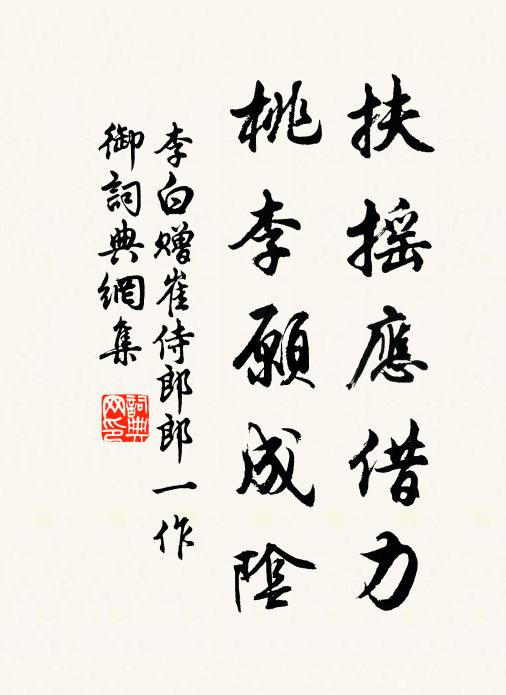 扶搖應借力
桃李願成陰
李白贈崔侍郎郎一作
御詞典網集
詞典网印